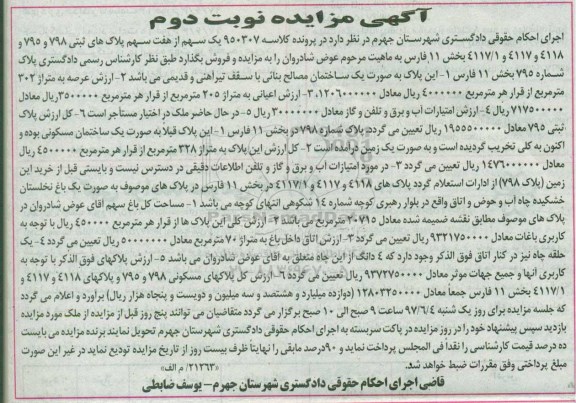 آگهی مزایده نوبت دوم
اجرای احکام حقوقی دادگستری شهرستان جهرم در نظر دارد در پرونده کلاسه ۹۵۰۳۰۷ یک سهم از هفت سهم پلاک های ثبتی ۷۹۸ و ۷۹۵ و
۴۱۱۸ و ۴۱۱۷ و ۴۱۱۷/۱ بخش ۱۱ فارس به ماهیت مرحوم عوض شادروان را به مزایده و فروش بگذارد طبق نظر کارشناس رسمی دادگستری پلاک
شماره ۷۹۵ بخش ۱۱ فارس ۱- این پلاک به صورت یک ساختمان مصالح بنائی با سقف تیرآهنی و قدیمی می باشد ۲- ارزش عرصه به متراژ ۳۰۲
مترمربع از قرار هر مترمربع ۴۰۰۰۰۰۰ ریال معادل ۱۲۰۶۰۰۰۰۰۰، ۳- ارزش اعیانی به متراژ ۲۰۵ مترمربع از قرار هر مترمربع ۳۵۰۰۰۰۰ریال معادل
۷۱۷۵۰۰۰۰۰ ریال ۴- ارزش امتیازات آب و برق و تلفن و گاز معادل ۳۰۰۰۰۰۰۰ ریال ۵- در حال حاضر ملک در اختیار مستأجر است ۶- کل ارزش پلاک
ثبتی ۷۹۵ معادل ۱۹۵۵۰۰۰۰۰۰ ریال تعیین می گردد. پلاک شماره ۷۹۸ در بخش ۱۱ فارس ۱- این پلاک قبلا به صورت یک ساختمان مسکونی بوده و
اکنون به کلی تخریب گردیده است و به صورت یک زمین درآمده است ۲- کل ارزش این پلاک به متراژ ۳۲۸ مترمربع از قرار هر مترمربع ۴۵۰۰۰۰۰ ریال
معادل ۱۴۷۶۰۰۰۰۰۰ ریال تعیین می گردد ۳- در مورد امتیازات آب و برق و گاز و تلفن اطلاعات دقیقی در دسترس نیست و بایستی قبل از خرید این
زمین (پلاک ۷۹۸) از ادارات استعلام گردد پلاک های ۴۱۱۸ و ۴۱۱۷ و ۴۱۱۷/۱ در بخش ۱۱ فارس در پلاک های موصوف به صورت یک باغ نخلستان
خشکیده چاه آب و حوض و اتاق واقع در بلوار رهبری کوچه شماره ۱۴ شکوهی انتهای کوچه می باشد ۱- مساحت کل باغ سهم آقای عوض شادروان در
پلاک های موصوف مطابق نقشه ضمیمه شده معادل ۲۰۷۱۵ مترمربع می باشد ۲- ارزش کلی این پلاک ها از قرار هر مترمربع ۴۵۰۰۰۰ ریال با توجه به
کاربری باغات معادل ۹۳۲۱۷۵۰۰۰۰ ریال تعیین می گردد ۳- ارزش اتاق داخل باغ به متراژ ۷۰ مترمربع معادل ۵۰۰۰۰۰۰۰ ریال تعیین می گردد ۴- یک
حلقه چاه نیز در کنار اتاق فوق الذکر وجود دارد که ۴ دانگ از این چاه متعلق به آقای عوض شادروان می باشد ۵- ارزش پلاکهای فوق الذکر با توجه به
کاربری آنها و جمیع جهات موثر معادل ۹۳۷۲۷۵۰۰۰۰ ریال تعیین می گردد ۶- ارزش کل پلاکهای مسکونی ۷۹۸ و ۷۹۵ و پلاکهای ۴۱۱۸ و ۴۱۱۷ و
۴۱۱۷/۱ بخش ۱۱ فارس جمعاً معادل ۱۲۸۰۳۲۵۰۰۰۰ (دوازده میلیارد و هشتصد و سه میلیون و دویست و پنجاه هزار ریال) برآورد و اعلام می گردد
که جلسه مزایده برای روز یک شنبه ۹۷/۶/۴ ساعت ۹ صبح الی ۱۰ صبح برگزار می گردد متقاضیان می توانند پنج روز قبل از مزایده از ملک مورد مزایده
بازدید سپس پیشنهاد خود را در روز مزایده در پاکت سربسته به اجرای احکام حقوقی دادگستری شهرستان جهرم تحویل نمایند برنده مزایده می بایست
ده درصد قیمت کارشناسی را نقداً فی المجلس پرداخت نماید و ۹۰درصد مابقی را نهایتاً ظرف بیست روز از تاریخ مزایده تودیع نماید در غیر این صورت
مبلغ پرداختی وفق مقررات ضبط خواهد شد.
«۲۱۲۶۳/ م الف»
قاضی اجرای احکام حقوقی دادگستری شهرستان جهرم- یوسف ضابطی